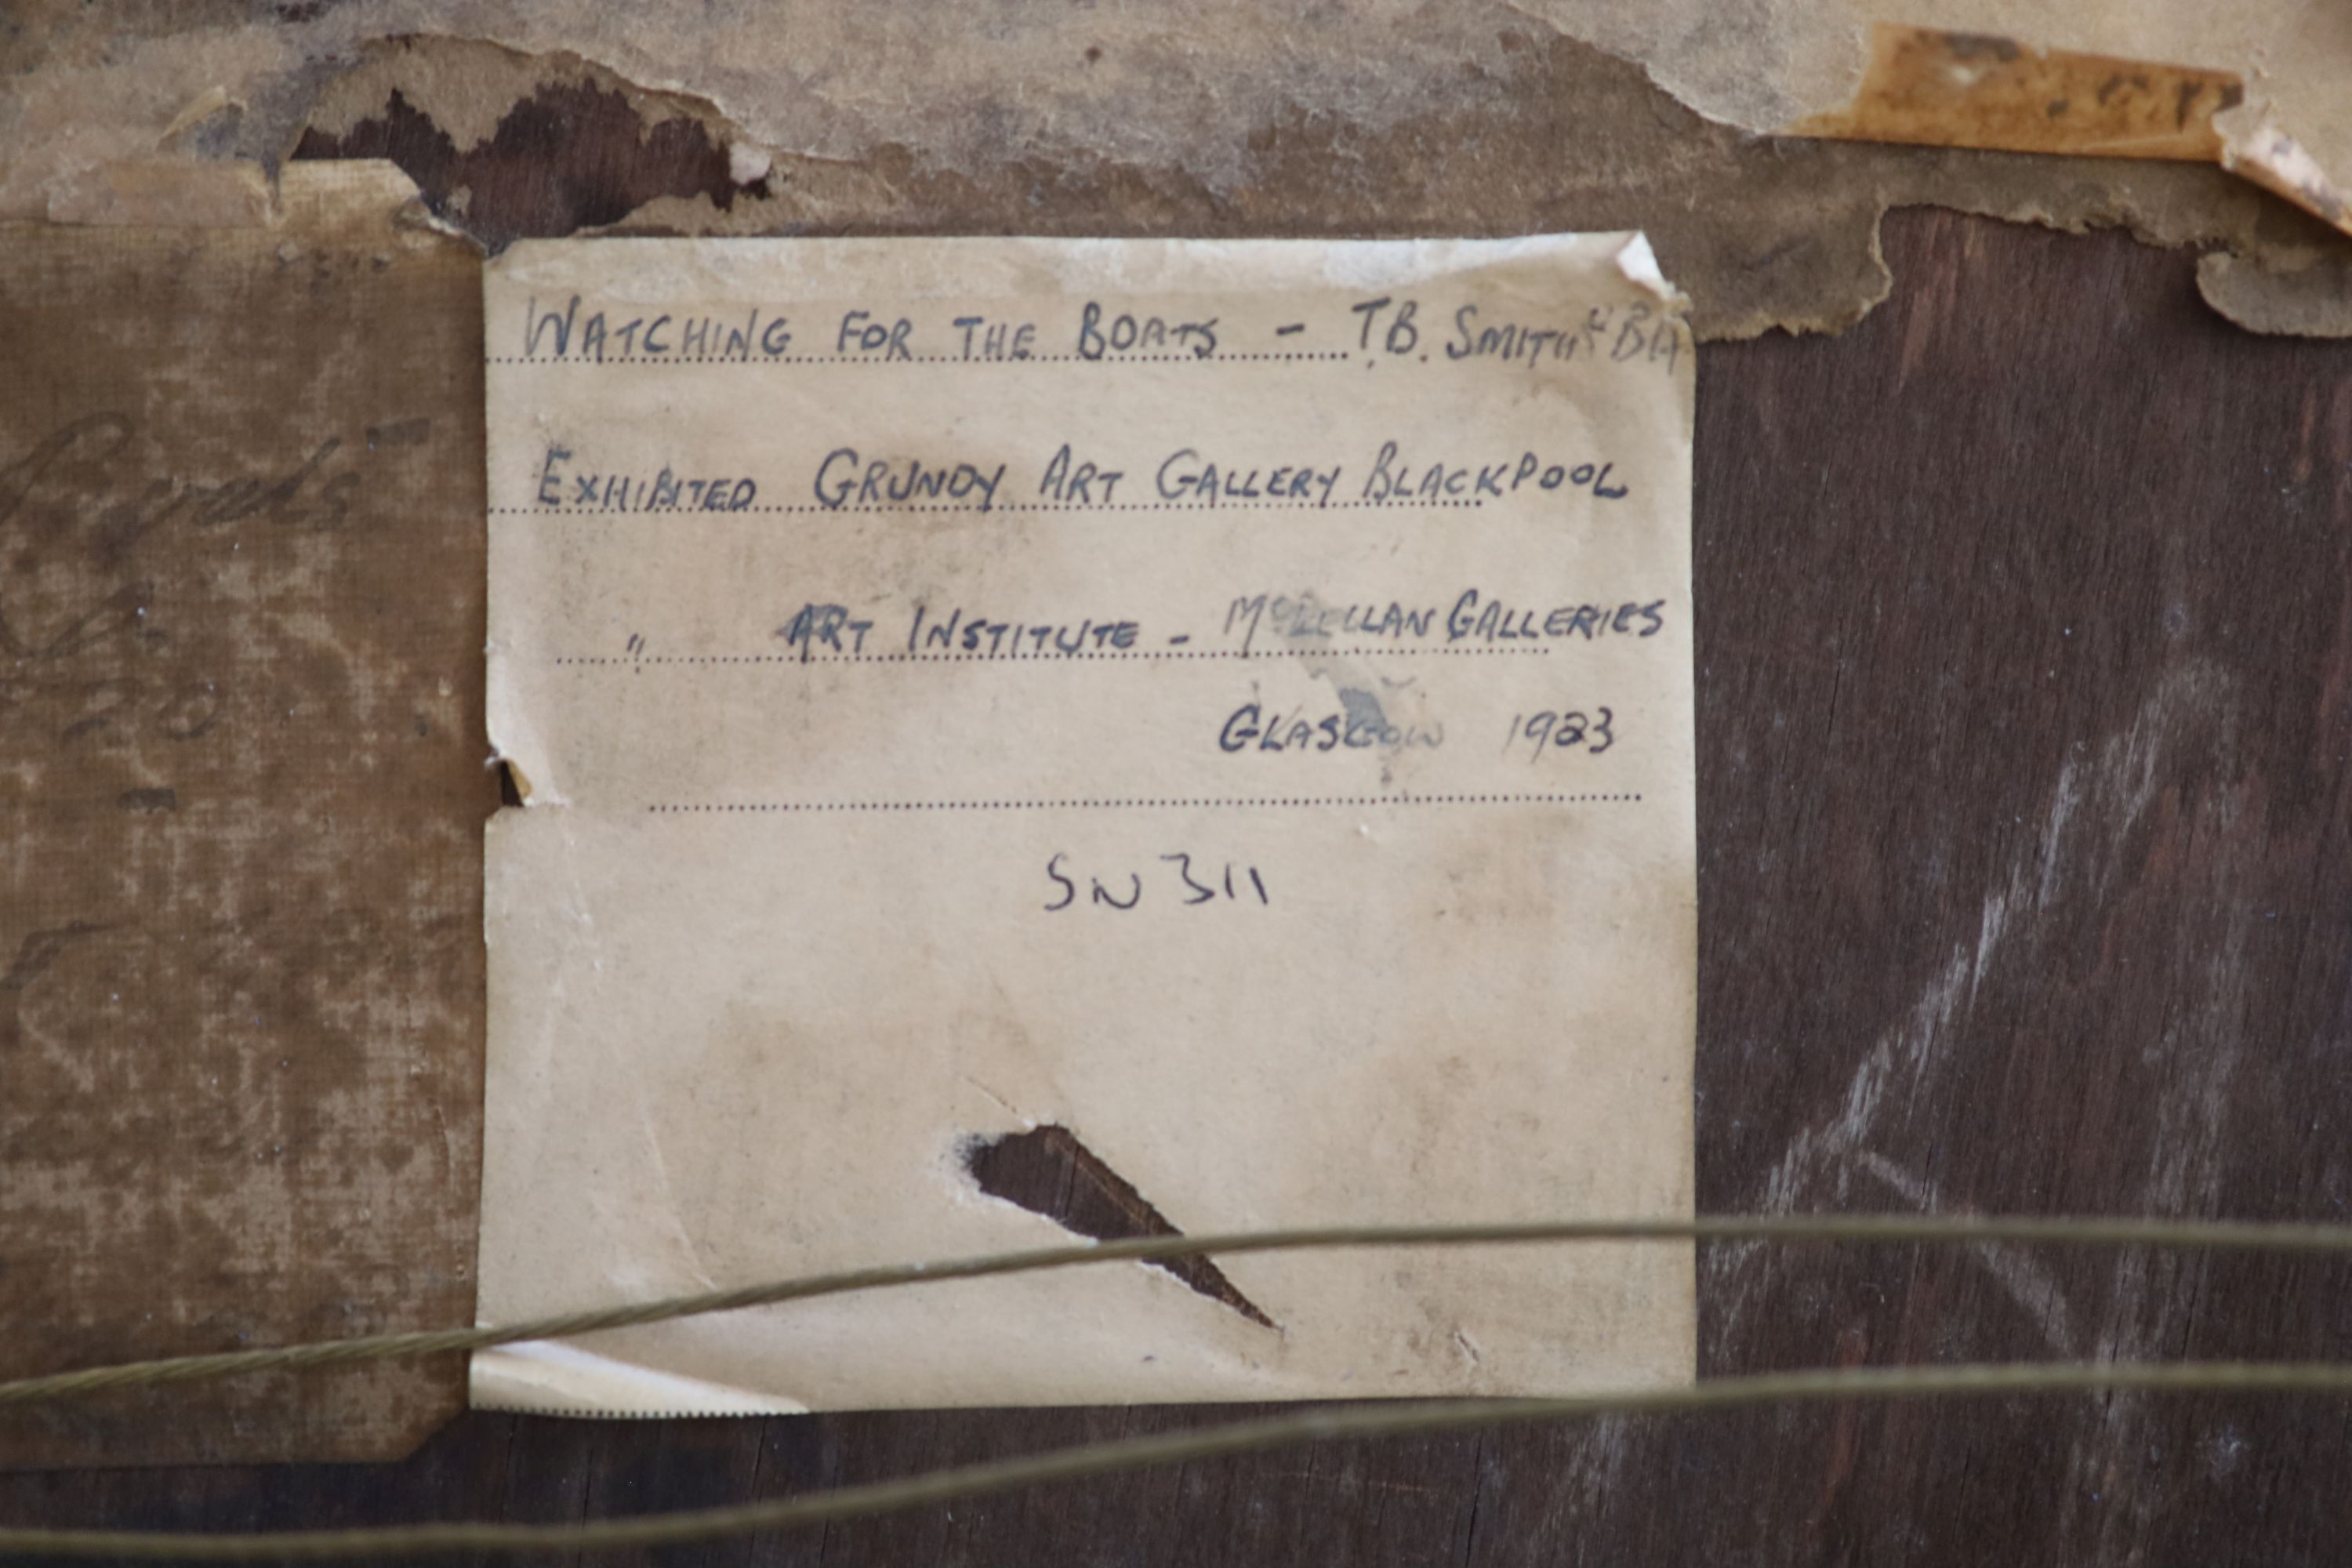 WATCHING FOR THE BOATS - T.B. SMITH
EXHIBITED GRUNDY ART GALLERY BLACKPOOL
" ART INSTITUTE - McLELLAN GALLERIES
GLASGOW 1923
SN 311